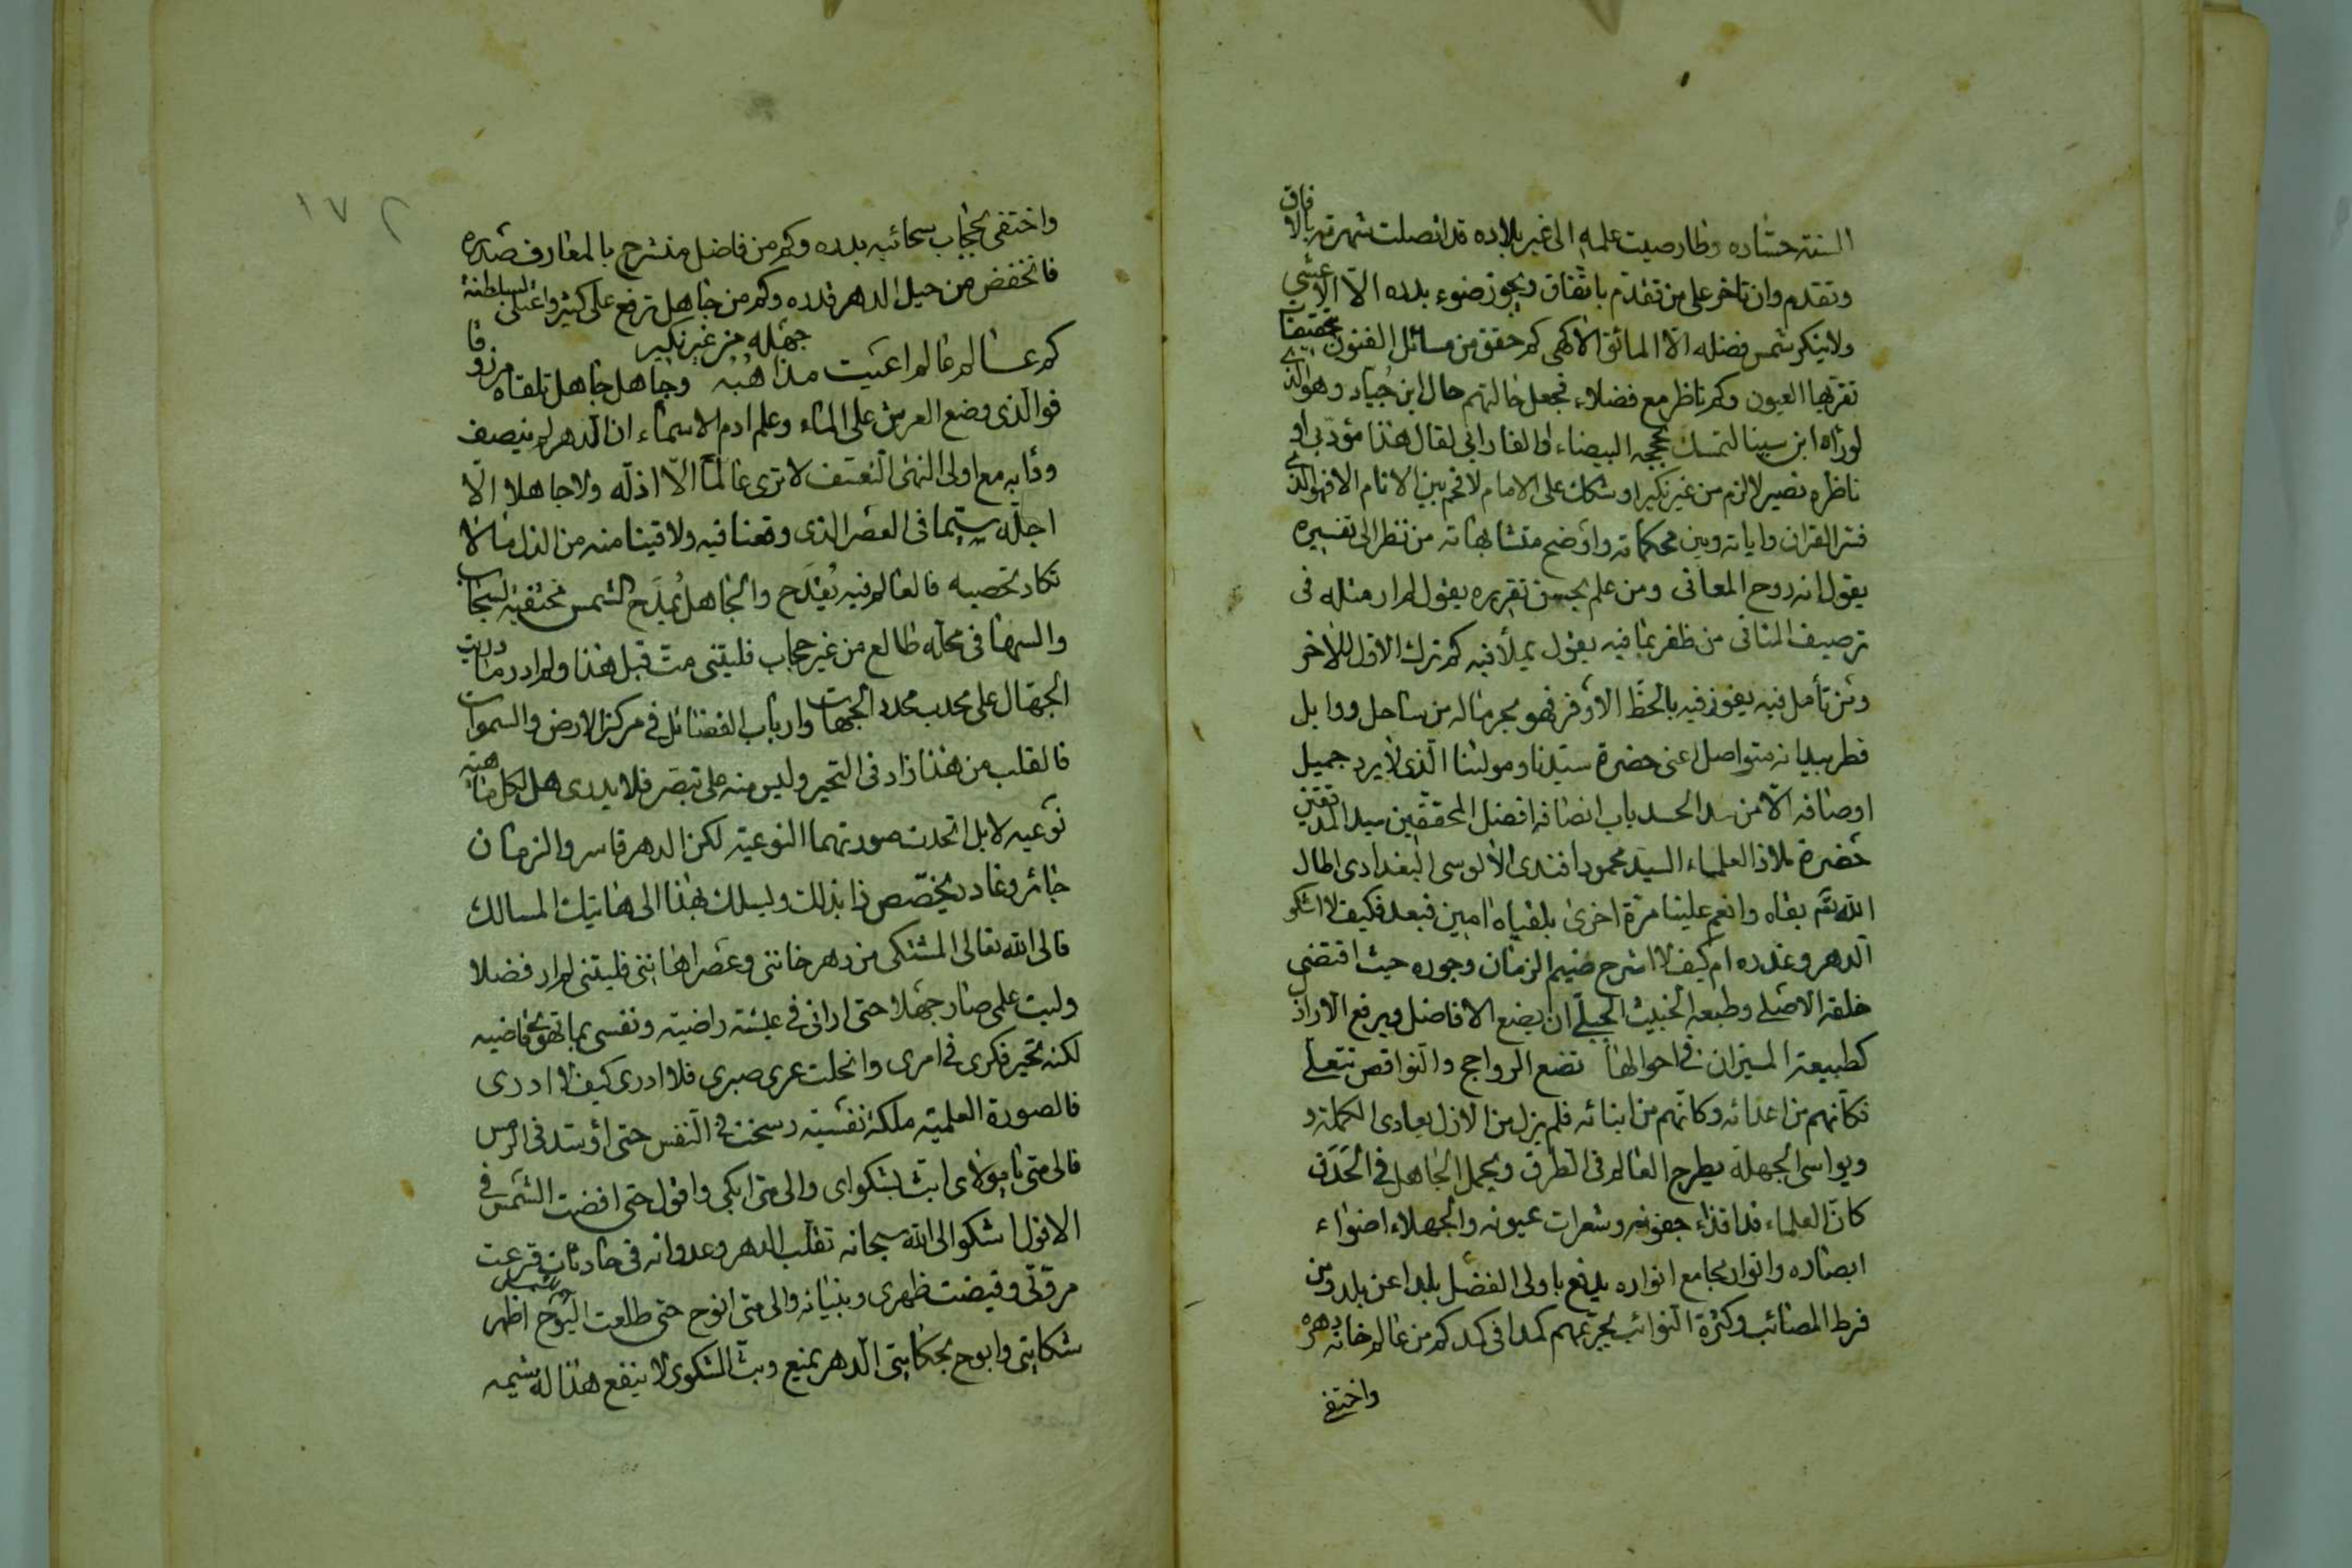 السنة حسّاده وطار صيت علمه الى غير بلاده قد انصلت شهرته بالافاق
وتقدم وان تاخر على من تقدم باتفاق ويجوز ضوء بدره الاّ الاعشى
ولا ينكر شمس فضله الاّ المائق الاكمى كم حقق من مسائل الفنون تحقيقات
تقرّبها العيون وكم ناظر مع فضلاء فجعل حالتهم حال ابن جُياد وهو الذي
لو رآه ابن سينا لتمسك بحججه البيضاء او الفارابي لقال هذا مؤدبي او
ناظره نصير لالزم من غير نكير او شكك على الامام لافحم بين الانام الا فهو الذي
فسّر القران واياته وبين محكماته واوضح متشابهاته من نظر الى تفسيره
يقول انه روح المعاني ومن علم بحسن تقريره يقول لم ار مثله في
ترصيف المثاني من ظفر بما فيه يقول بملأ فيه كم ترك الاول للاخر
ومن تأمل فيه يفوز فيه بالحظّ الاوفر فهو بحر ماله من ساحل ووابل
قطر بيانه متواصل اعني حضرة سيّدنا ومولٰنا الّذي لا يرد جميل
اوصافه الاّ من سد الحسد باب انصافه افضل المحققين سيد المدققين
حضرة ملاذ العلماء السيّد محمود افندى الالوسى البغدادى اطال
الله تعم بقاه وانعم علينا مرّة اخرى بلقياه امين فبعد فكيف لا اشكو
الدهر وغدره ام كيف لا اشرح ضيم الزمان وجوره حيث اقتضى
خلقه الاصلي وطبعه الخبيث الجبلّي ان يضع الافاضل ويرفع الاراذ
كطبيعة الميزان في احوالها تضع الرواجح والنواقص تتعلى
فكأنهم من اعدائه وكانهم من ابنائه فلم يزل من الازل يعادى الكملة و
ويواسى الجهلة يطرح العالم في الطرق ويحمل الجاهل في الحَدَق
كانّ العلماء قد اقذاء جفونه وشعرات عيونه والجهلاء اضواء
ابصاره وانوار مجامع انواره يدفع باولى الفضل بلدا عن بلد ومن
فرط المصائب وكثرة النوائب يجرّعهم كمدا في كمد كم من عالم خانه دهره
واختفى
١٧٢
واختفى بحجاب سحائبه بدره وكم من فاضل منشرح بالمعارف صدره
فانخفض من حيل الدهر قدره وكم من جاهل ترفع على كثير واعتلى لسلطنة
جهله من غير نكير
كم عالم عالم اعيت مذاهبُه وجاهل جاهل تلقاه مرزوقا
فوالّذى وضع العرش على الماء وعلم ادم الاسماء ان الدهر لم ينصف
ودأبه مع اولى النهى التعسّف لا ترى عالمًا الاّ اذلّه ولا جاهلا الاّ
اجلّه سيّما في العصر الذى وقعنا فيه ولاقينا منه من الذل ما لا
تكاد تحصيه فالعالم فيه يُقْدَح والجاهل يُمْدَح الشمس مختفية لسحاب
والسها في محله طالع من غير حجاب فليتنى متّ قبل هذا ولم ادر ما دريت
الجهّال على محدب محدد الجهات وارباب الفضائل في مركز الارض والسموات
فالقلب من هذا زاد في التحير وليس منه على تبصّر فلا يدرى هل لكل ماهية
نوعيه لا بل اتحدت صورتهما النوعية لكن الدهر قاسر والزمان
جائر وغادر يخصّص ذا بذاك وليسلك بهذا الى هاتيك المسالك
فالى الله تعالى المشتكى من دهر خانني وعصر اهانني فليتنى لم ار فضلا
وليت علمى صار جهلا حتى ارانى في عيشة راضية ونفسى بما تهوى قاضيه
لكنه تحير فكرى في امرى وانحلت عرى صبرى فلا ادرى كيف لا ادرى
فالصورة العلمية ملكة نفسية رسخت في النفس حتى اوسّد في الرمس
فالى متى يا مولاى ابثّ بشكواى والى متى ابكى واقول حتى افضت الشمس في
الافول اشكو الى الله سبحانه تقلّب الدهر وعدوانه في حادثات قرعت
مرّوتى وقيضت ظهرى وبنيانه والى متى انوح حتى طلعت اليوح اظهر
شمس
شكايتى وابوح بحكايتى الدهر يمنع وبثّ الشكوى لا ينفع هذا له شيمه